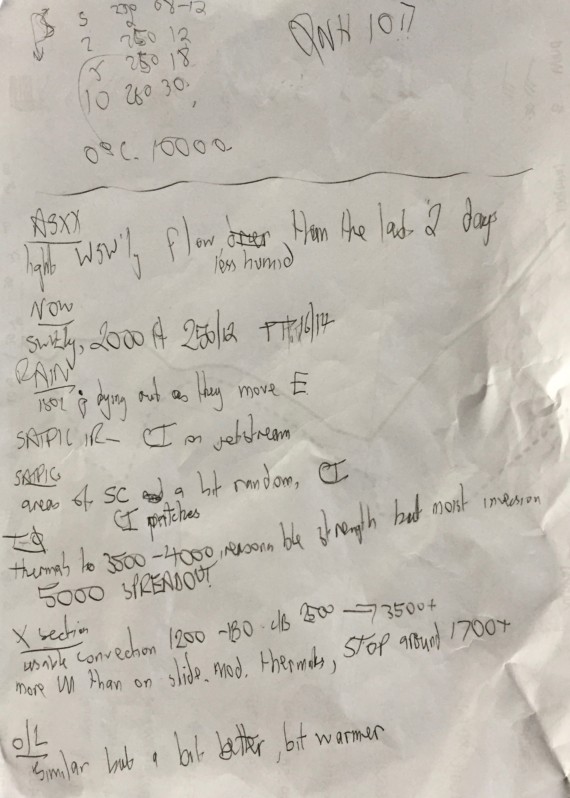 5 290 08-12
2 250 12
250 18
10 260 30
QNH 1017
0°C. 10000
ASXX
light WSW'ly flow, drier than the last 2 days
less humid
NOW
SW'ly, 2000ft 250/12 TT 16/17
RAIN
dying out as they move E
SATPIC IR - CI on jetstream
SATPIC
areas of SC a bit random, CI
CI patches
thermals to 3500-4000, reasonable strength but moist inversion
5000 SPREADOUT
X section
usable convection 1200 c/B 2500 ⟹ 3500+
more W than on slide. mod. thermals, STOP around 1700+
O/L
similar but a bit better, bit warmer